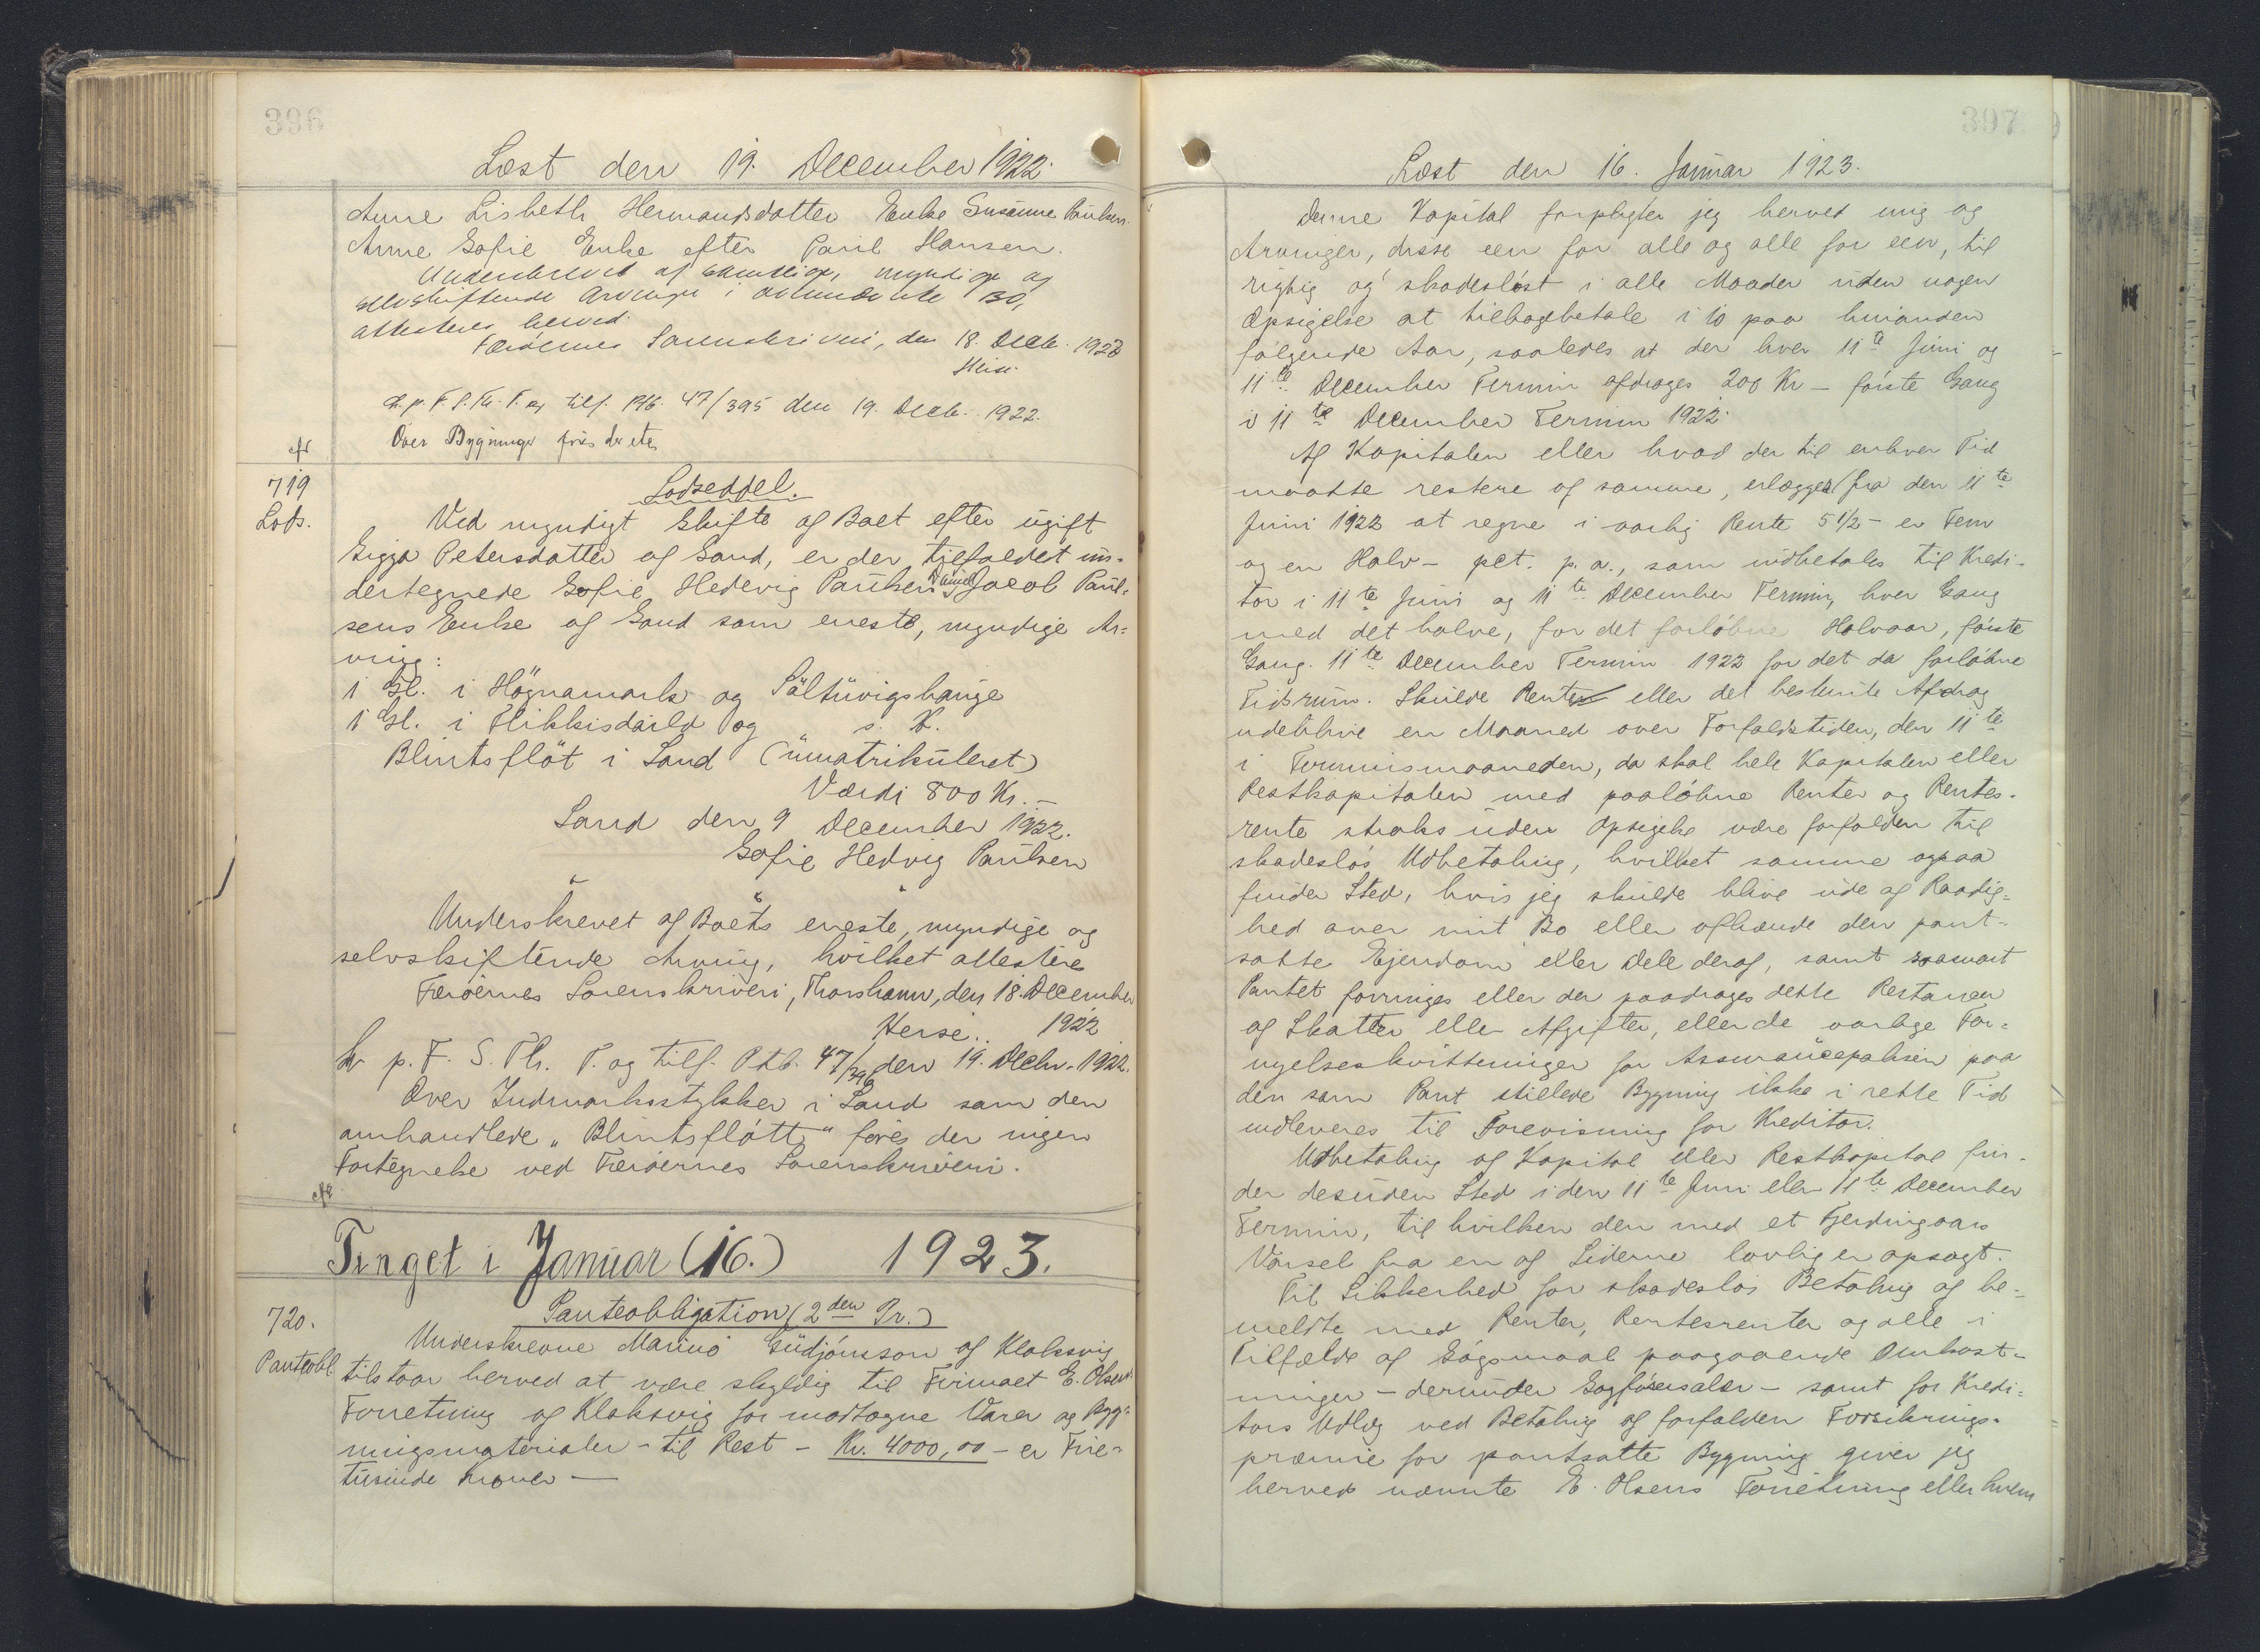 396
Læst den 19. December 1922.
Anne Lisbeth Hermansdatter Enke Susanne Paulsen.
Anne Sofie Enke efter Paul Hansen.
Underskrevet af samtlige, myndige og
selvskiftende Arvinger i ovennævnte Bo,
attesteres herved.
Færøernes Sorenskriveri, den 18. Decb. 1922
L. p. F. S. Th. T. og tilf. Ptb. 47/395 den 19. Decb. 1922.
Over Bygninger føres der ikke
719
Lods.
Lodseddel.
Ved myndigt Skifte af Boet efter ugift
Sigga Petersdatter af Sand, er der tilfaldet un-
dertegnede Sofie Hedevig Paulsen Daniel Jacob Paul-
sens Enke af Sand som eneste, myndige Ar-
ving:
1 Gl. i Høgnamark og Søltuvigshauge
1 Gl. i Flikkisdaild og s. H.
Blintsfløt i Sand (umatrikuleret)
Værdi 800 Kr. –
Sand den 9 December 1922.
Sofie Hedvig Paulsen
Underskrevet af Boets eneste, myndige og
selvskiftende Arving, hvilket attesteres
Færøernes Sorenskriveri, Thorshavn, den 18. December
1922
L. p. F. S. Th. T. og tilf. Ptb. 47/396 den 19. Decbr. 1922.
Over Indmarksstykker i Sand som den
omhandlede „Blintsfløtt“ føres der ingen
Fortegnelse ved Færøernes Sorenskriveri.
Tinget i Januar (16.) 1923.
720.
Panteobl.
Panteobligation (2den Pr.)
Underskrevne Marino Gudjónsson af Klaksvig
tilstaar herved at være skyldig til Firmaet E. Olsens
Forretning af Klaksvig for modtagne Varer og Byg-
ningsmaterialer – til Rest – Kr. 4000,00 – er Fire-
tusinde Kroner –
397
Læst den 16. Januar 1923.
Denne Kapital forpligter jeg herved mig og
Arvinger, disse een for alle og alle for een, til
rigtig og skadesløst i alle Maader uden nogen
Opsigelse at tilbagebetale i 10 paa hinanden
følgende Aar, saaledes at der hver 11te Juni og
11te December Termin afdrages 200 Kr – første Gang
i 11te December Termin 1922.
Af Kapitalen eller hvad der til enhver Tid
maatte restere af samme, erlægges fra den 11te
Juni 1922 at regne i aarlig Rente 5 1/2 – er Fem
og en Halv – pct. p. a., som indbetales til Kredi-
tor i 11te Juni og 11te December Termin, hver Gang
med det halve, for det forløbne Halvaar, første
Gang 11te December Termin 1922 for det da forløbne
Tidsrum. Skulde Renter eller det bestemte Afdrag
udeblive en Maaned over Forfaldstiden, den 11te
i Terminsmaaneden, da skal hele Kapitalen eller
Restkapitalen med paaløbne Renter og Rentes-
rente straks uden Opsigelse være forfalden til
skadesløs Udbetaling, hvilket samme ogsaa
finder Sted, hvis jeg skulde blive ude af Raadig-
hed over mit Bo eller afhænde den pant-
satte Ejendom eller Dele deraf, samt saasnart
Pantet forringes eller der paadrages dette Restancer
af Skatter eller Afgifter, eller de aarlige For-
nyelseskvitteringer for Assurancepolicen paa
den som Pant stillede Bygning ikke i rette Tid
indleveres til Forevisning for Kreditor.
Udbetaling af Kapital eller Restkapital fin-
der desuden Sted i den 11te Juni eller 11te December
Termin, til hvilken den med et Fjerdingaars
Varsel fra en af Siderne lovlig er opsagt.
Til Sikkerhed for skadesløs Betaling af be-
meldte med Renter, Rentesrenter og alle i
Tilfælde af Søgsmaal paagaaende Omkost-
ninger – derunder Sagførersalær – samt for Kredi-
tors Udlæg ved Betaling af forfalden Forsikrings-
præmie for pantsatte Bygning giver jeg
herved nævnte E. Olsens Forretning eller hvem